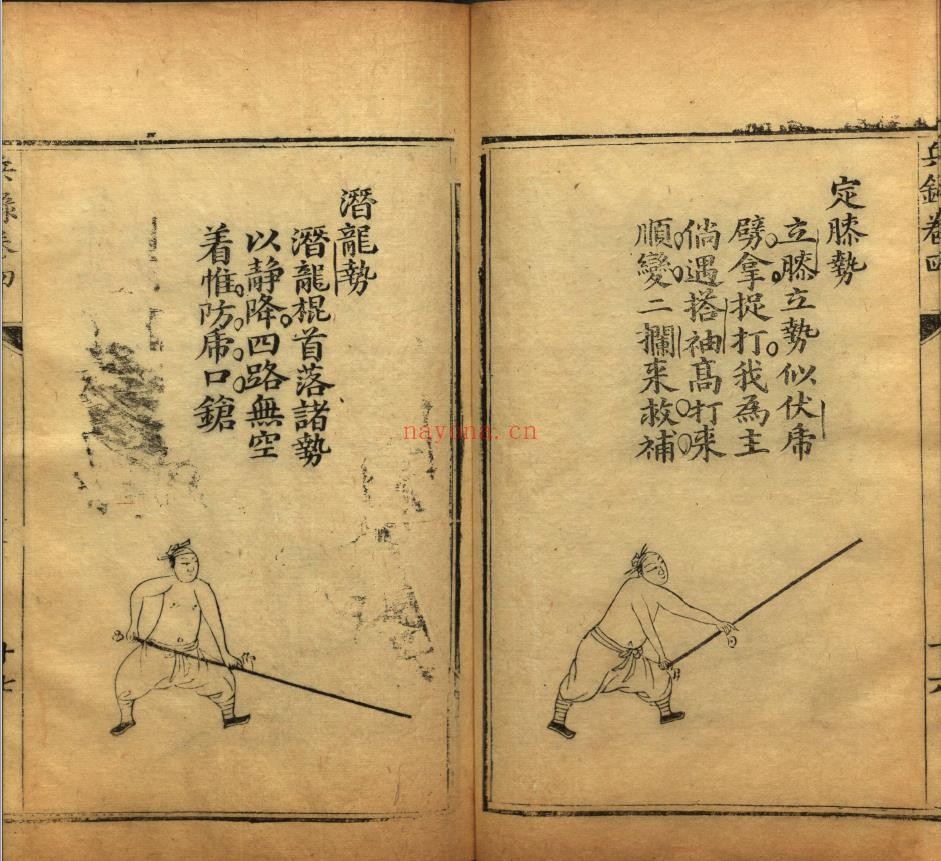 兵錄卷四
定膝勢
立膝立勢似伏虎
劈拿捉打我為主
倘遇搭袖高打来
順變二攔来救補
潛龍勢
潛龍棍首落諸勢
以靜降四路無空
着惟防虎口鎗
兵錄卷四
nayona.cn